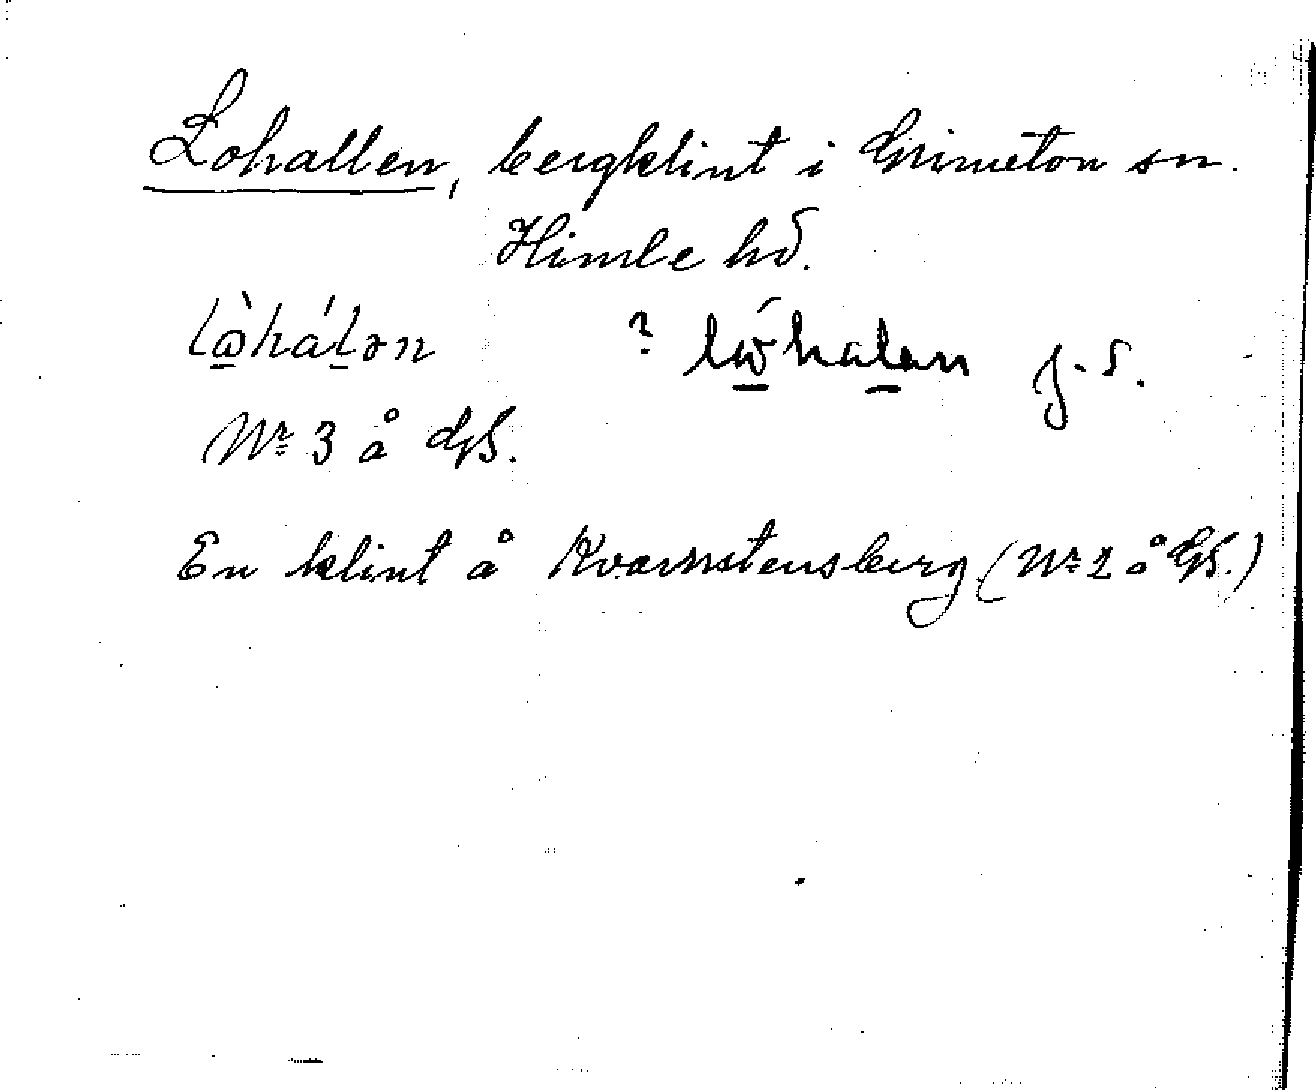 Lohallen, bergklint i Grimeton sn.
Himle hd.
lòhálən ? lωhalən J. S.
Nr 3 å GS.
En klint å Kvarnstensberg (Nr 2 å GS.)